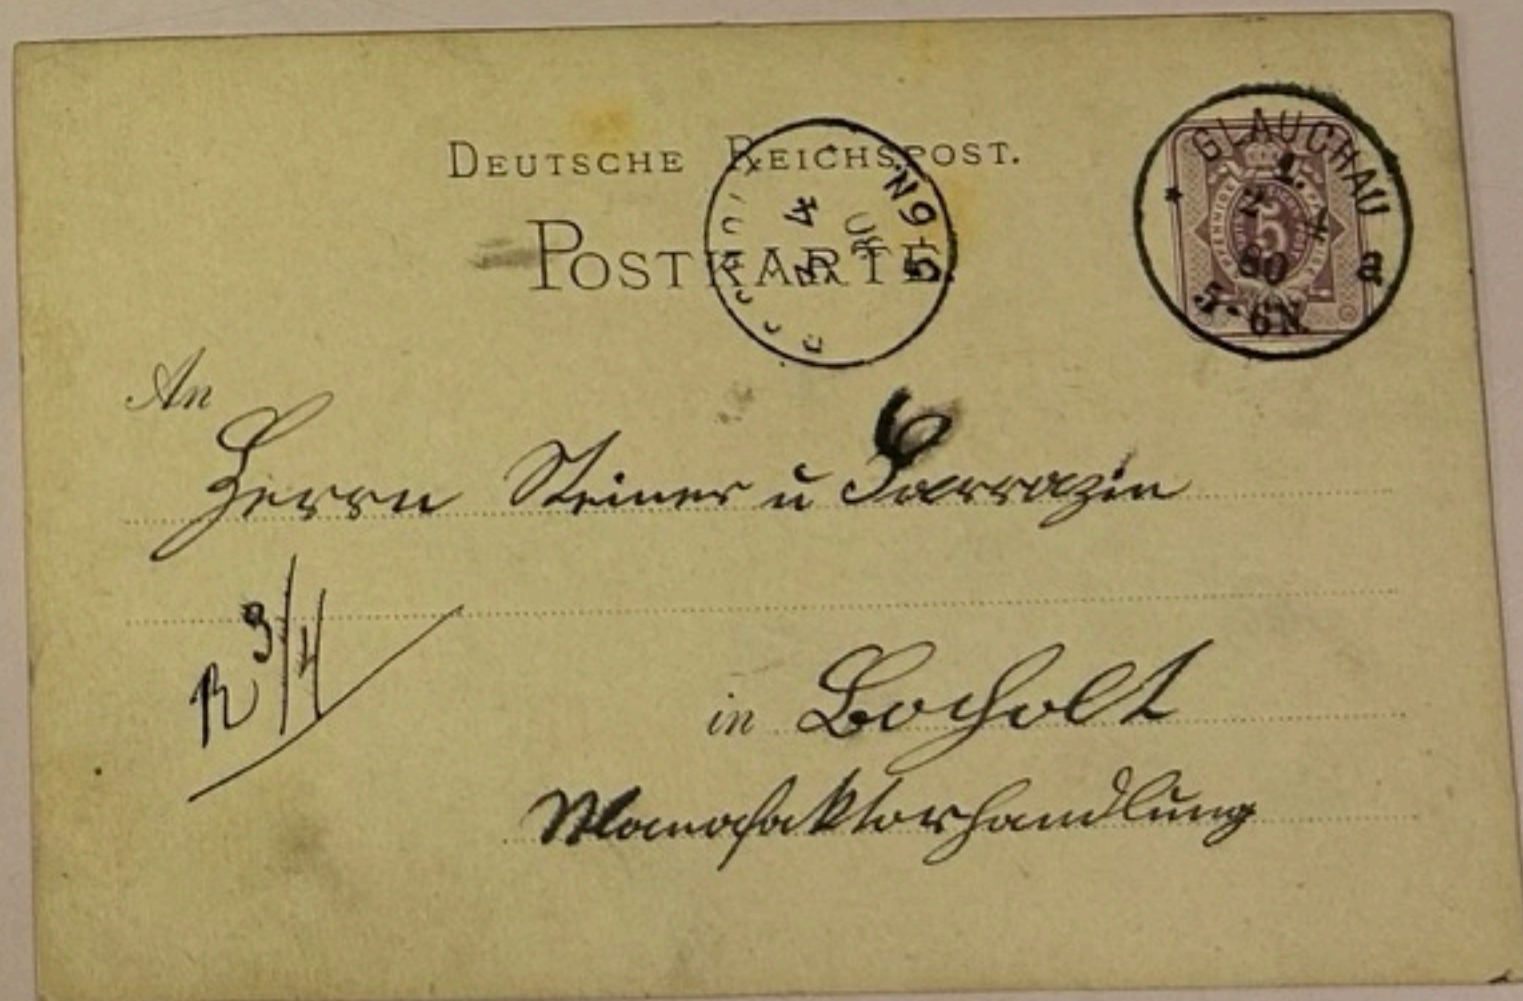 DEUTSCHE REICHSPOST.
POSTKARTE
GLAUCHAU
2 4
80
5-6N.
a
5
3 4
80
5-6N
An
Herrn Steiner u Sarrazin
R 3/4
in Bocholt
Manofaktorhandlung